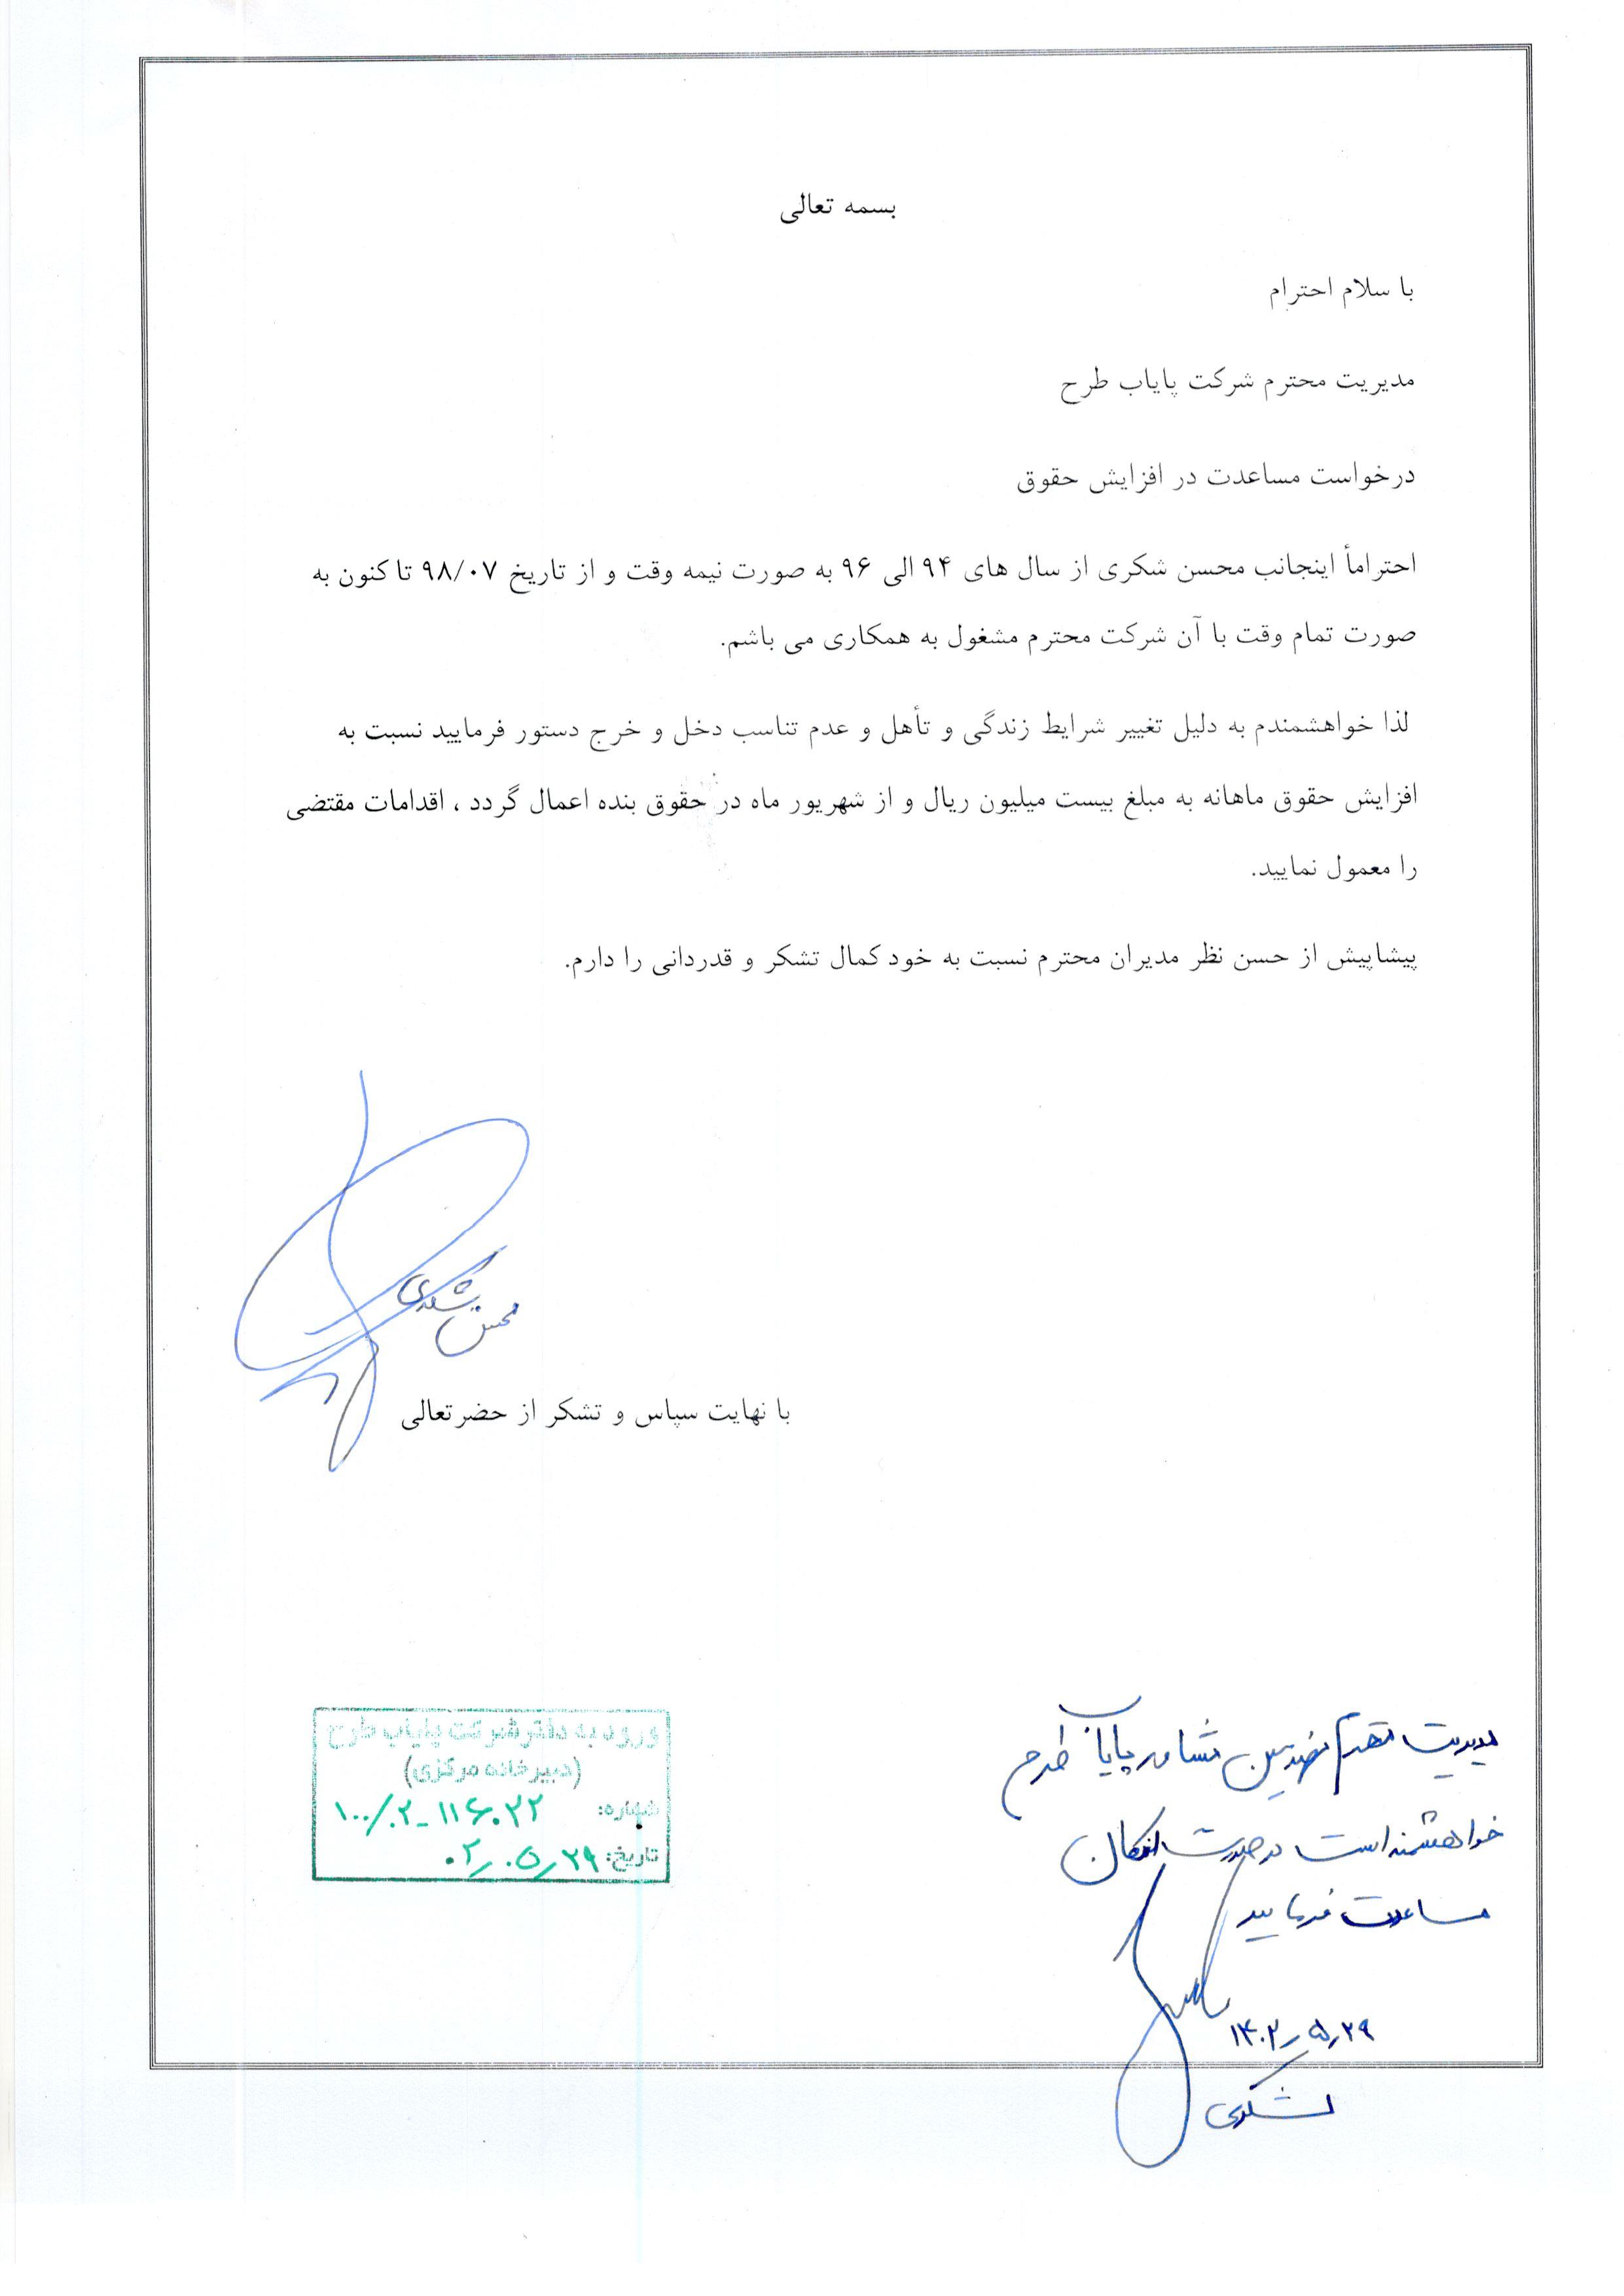 بسمه تعالی
با سلام احترام
مدیریت محترم شرکت پایاب طرح
درخواست مساعدت در افزایش حقوق
احتراماً اینجانب محسن شکری از سال های ۹۴ الی ۹۶ به صورت نیمه وقت و از تاریخ ۹۸/۰۷ تا کنون به
صورت تمام وقت با آن شرکت محترم مشغول به همکاری می باشم.
لذا خواهشمندم به دلیل تغییر شرایط زندگی و تأهل و عدم تناسب دخل و خرج دستور فرمایید نسبت به
افزایش حقوق ماهانه به مبلغ بیست میلیون ریال و از شهریور ماه در حقوق بنده اعمال گردد ، اقدامات مقتضی
را معمول نمایید.
پیشاپیش از حسن نظر مدیران محترم نسبت به خود کمال تشکر و قدردانی را دارم.
محسن شکری
با نهایت سپاس و تشکر از حضرتعالی
مدیریت محترم مهندسین مشاور پایاب طرح
خواهشمند است در صورت امکان
مساعدت فرمایید
۱۴۰۲/۵/۲۹
ورود به دفتر شرکت پایاب طرح
(دبیرخانه مرکزی)
شماره: ۱۰۰/۰۲-۱۱۶۰۲۲
تاریخ: ۰۲/۰۵/۲۹